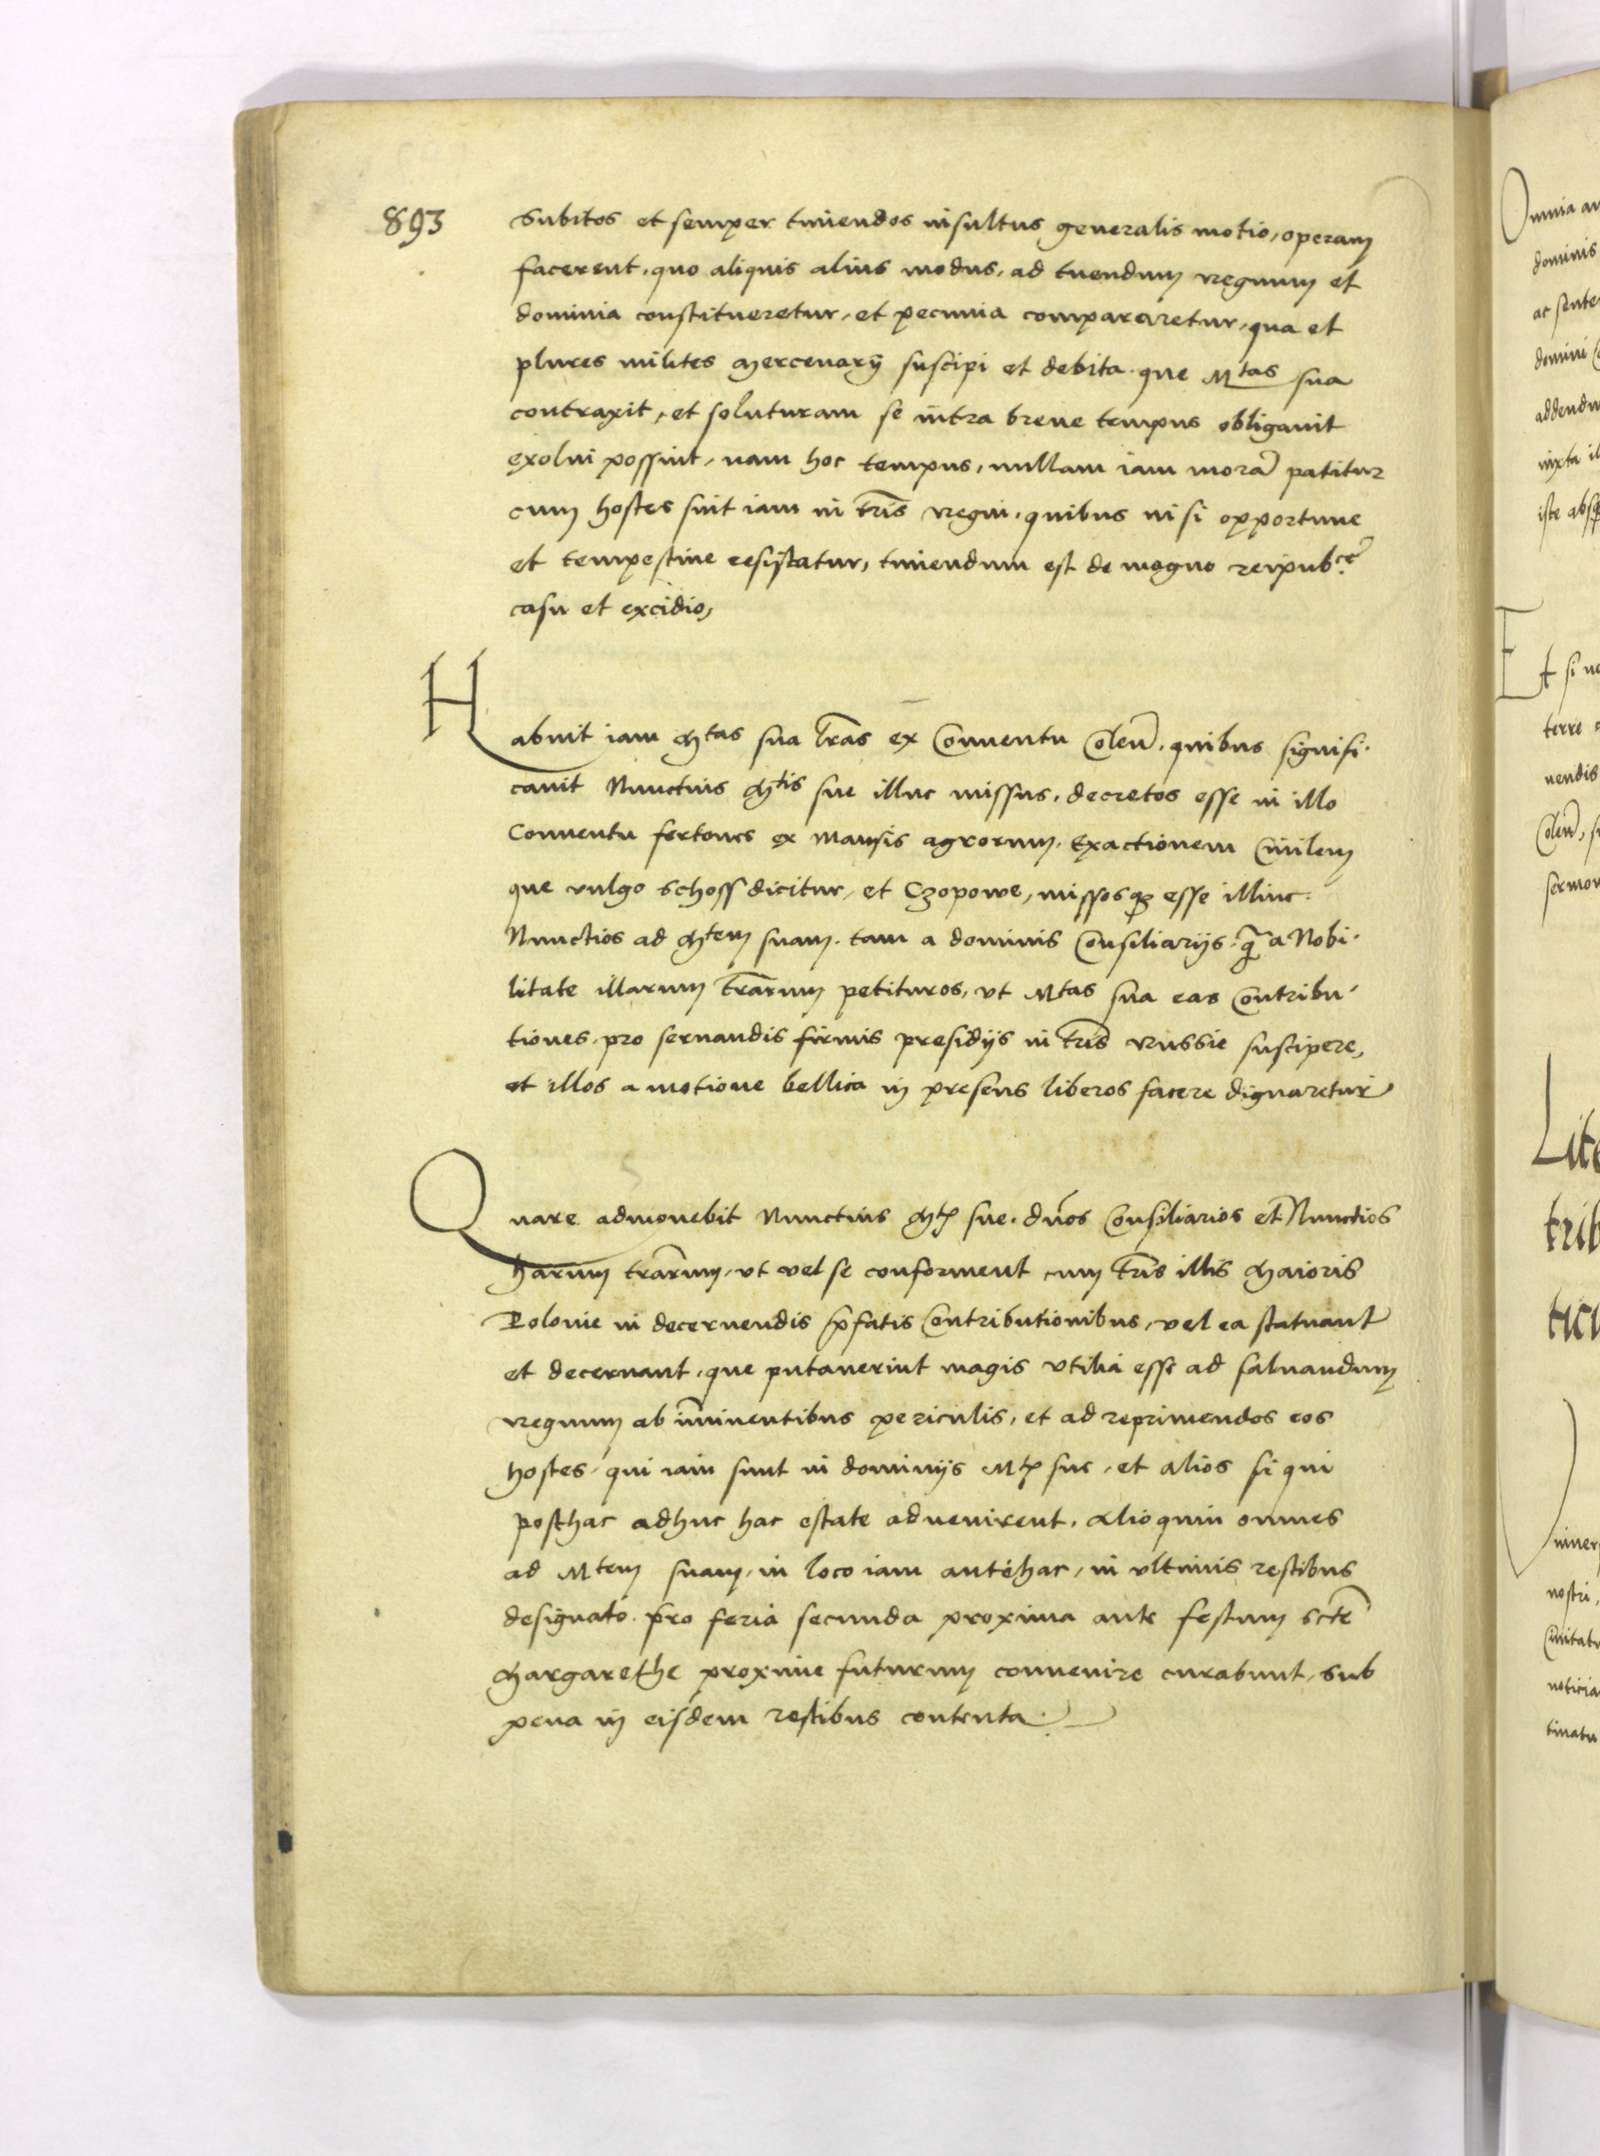 893
Subitos et semper timendos insultus generalis motio, operam
facerent, quo aliquis alius modus, ad tuendum regnum et
dominia constitueretur, et pecunia compararetur, qua et
plures milites mercenarÿ suscipi et debita que Mtas sua
contraxit, et soluturam se intra breue tempus obligauit
exolui possint, nam hoc tempus, nullam iam morã patitur
cum hostes sint iam in tr̃is regni, quibus nisi opportune
et tempestiue resistatur, timendum est de magno reipubce
casu et excidio,
Habuit iam Mtas sua lr̃as ex Conuentu Coleñ. quibus signifi-
cauit Nunctius Mtis sue illuc missus, decretos esse in illo
Conuentu fertones ex mansis agrorum, exactionem Ciuilem
que vulgo schoss dicitur, et Czopowe, missosqʒ esse illinc
Nunctios ad Mtem suam, tam a dominis Consiliarijs q̃ a Nobi-
litate illarum trãrum petituros, vt Mtas sua eas Contribu-
tiones pro seruandis firmis presidijs in tr̃is Russie suscipere,
et illos a motione bellica in presens liberos facere dignaretur
Quare admonebit Nunctius Mtis sue, dños Consiliarios et Nunctios
harum trãrum, vt vel se conforment cum tr̃is illis Maioris
Polonie in decernendis p̃fatis Contributionibus, vel ea statuant
et decernant, que putauerint magis vtilia esse ad saluandum
regnum ab im̃inentibus periculis, et ad reprimendos eos
hostes, qui iam sunt in dominijs Mtis sue, et alios si qui
posthac adhuc hac estate aduenirent, Alioquin omnes
ad Mtem suam, in loco iam antehac, in vltimis restibus
designato pro feria secunda proxima ante festum scte
Margarethe proxime futurum conuenire curabunt, sub
pena in eisdem restibus contenta.